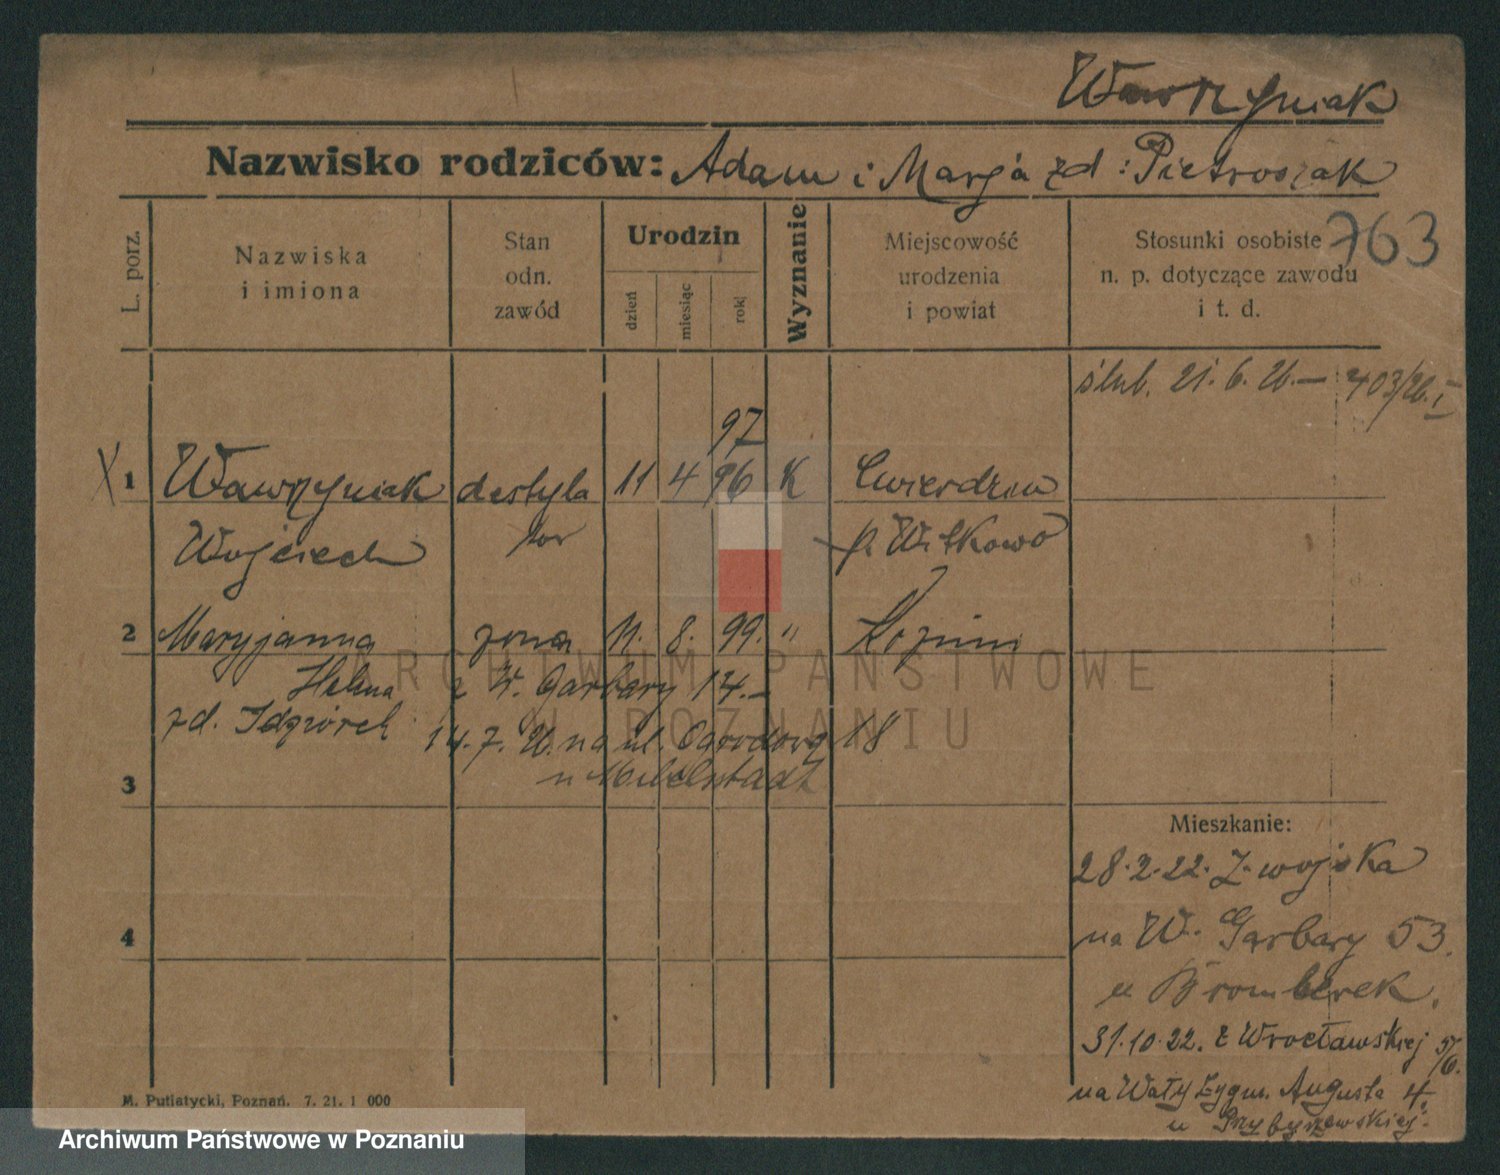 Wawrzyniak
Nazwisko rodziców: Adam i Marja zd: Pietroszak
763
L. porz.
Nazwiska
i imiona
Stan
odn.
zawód
Urodzin
dzień
miesiąc
rok
Wyznanie
Miejscowość
urodzenia
i powiat
Stosunki osobiste
n. p. dotyczące zawodu
i t. d.
ślub. 21.6.26.— 403/26. I
97
1 Wawrzyniak destyla 11 4 96 K Cwierdzin
Wojciech tor p. Witkowo
2 Maryjanna żona 11. 8. 99. " Kozmin
Helena z W. Garbary 14.—
zd. 14.7.26. na ul. Ogrodową 18
3 u
Mieszkanie:
28.2.22. Z wojska
4 na W. Garbary 53.
u Bromberek.
31.10.22. z Wrocławskiej
na Wały Zygm. Augusta 4.
u Przybyszewskiej.
M. Putiatycki, Poznań. 7. 21. 1 000
ARCHIWUM PAŃSTWOWE
W POZNANIU
Archiwum Państwowe w Poznaniu